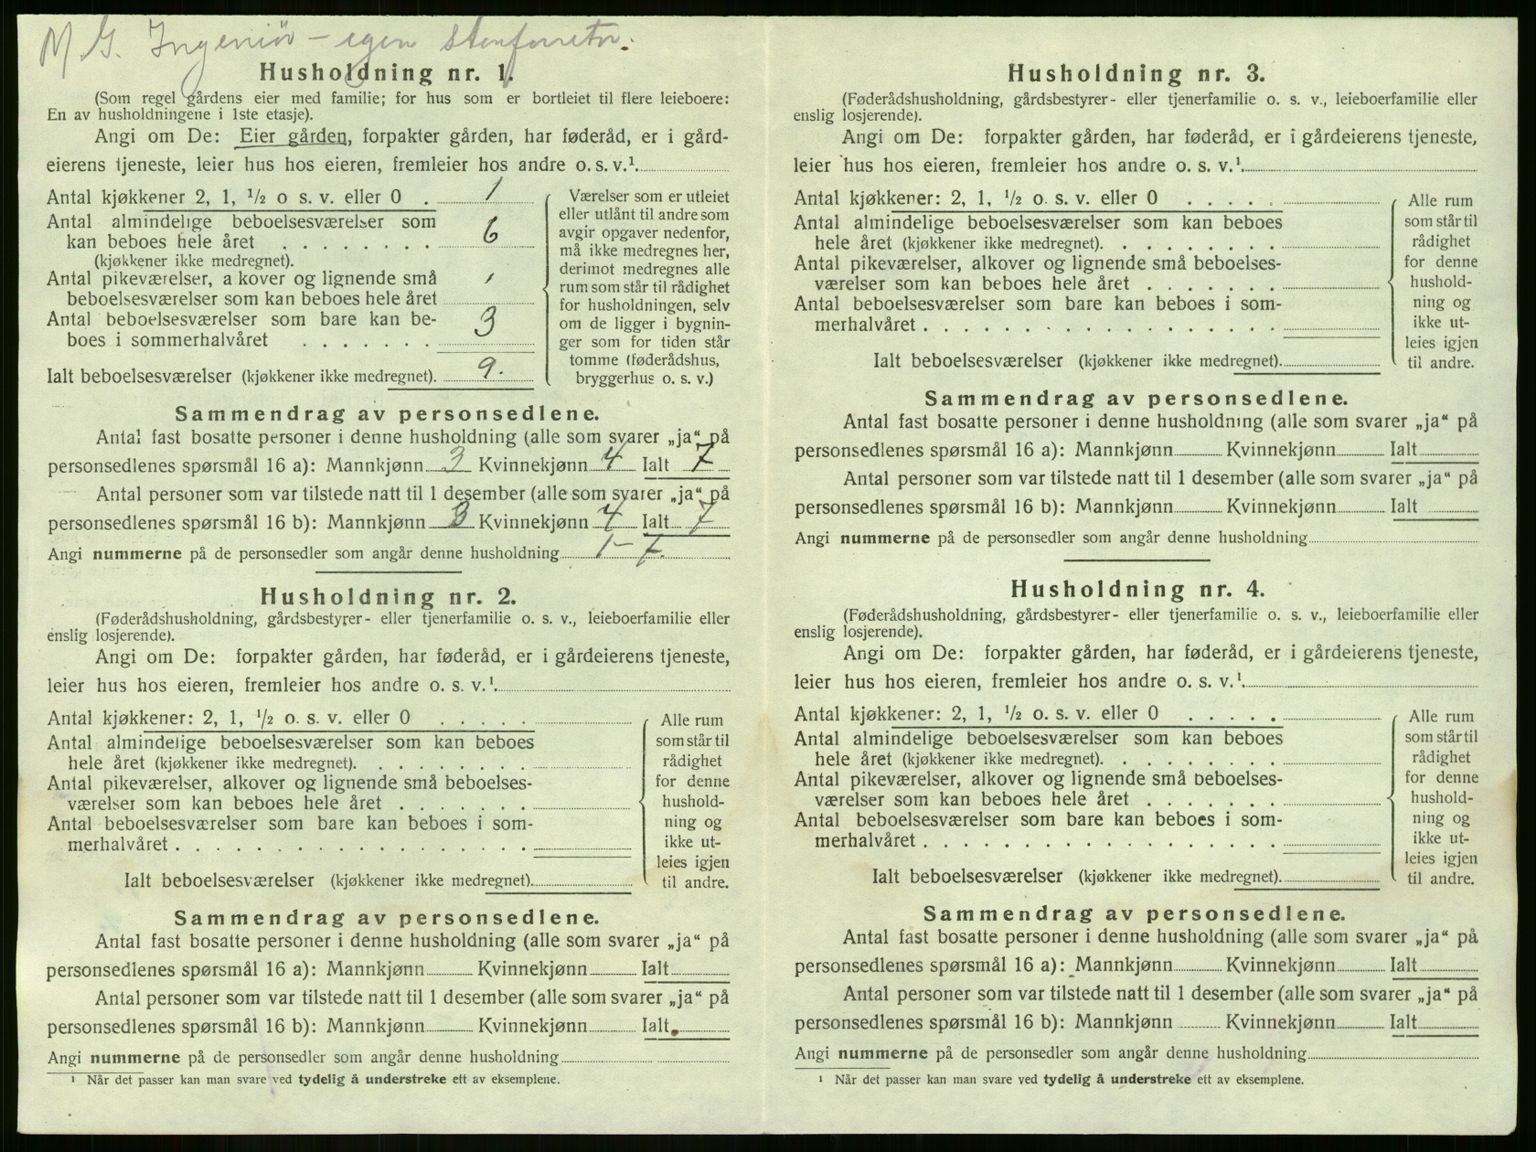 M. G. Ingeniør – egen
Husholdning nr. 1.
(Som regel gårdens eier med familie; for hus som er bortleiet til flere leieboere:
En av husholdningene i 1ste etasje).
Angi om De: Eier gården, forpakter gården, har føderåd, er i gård-
eierens tjeneste, leier hus hos eieren, fremleier hos andre o. s. v.¹.
Antal kjøkkener 2, 1, ½ o s. v. eller 0 . 1
Antal almindelige beboelsesværelser som
kan beboes hele året . . . . . . . . 6
(kjøkkener ikke medregnet).
Antal pikeværelser, a kover og lignende små
beboelsesværelser som kan beboes hele året
Antal beboelsesværelser som bare kan be-
boes i sommerhalvåret . . . . . . . 3
Ialt beboelsesværelser (kjøkkener ikke medregnet). 9.
Værelser som er utleiet
eller utlånt til andre som
avgir opgaver nedenfor,
må ikke medregnes her,
derimot medregnes alle
rum som står til rådighet
for husholdningen, selv
om de ligger i bygnin-
ger som for tiden står
tomme (føderådshus,
bryggerhus o. s. v.)
Sammendrag av personsedlene.
Antal fast bosatte personer i denne husholdning (alle som svarer „ja“ på
personsedlenes spørsmål 16 a): Mannkjønn 3 Kvinnekjønn 4 Ialt 7
Antal personer som var tilstede natt til 1 desember (alle som svarer „ja“ på
personsedlenes spørsmål 16 b): Mannkjønn 3 Kvinnekjønn 4 Ialt 7
Angi nummerne på de personsedler som angår denne husholdning 1–7.
Husholdning nr. 2.
(Føderådshusholdning, gårdsbestyrer- eller tjenerfamilie o. s. v., leieboerfamilie eller
enslig losjerende).
Angi om De: forpakter gården, har føderåd, er i gårdeierens tjeneste,
leier hus hos eieren, fremleier hos andre o. s. v.¹.
Antal kjøkkener: 2, 1, ½ o. s. v. eller 0 . . . . .
Antal almindelige beboelsesværelser som kan beboes
hele året (kjøkkener ikke medregnet). . . . . . . . .
Antal pikeværelser, alkover og lignende små beboelses-
værelser som kan beboes hele året . . . . . . .
Antal beboelsesværelser som bare kan beboes i som-
merhalvåret . . . . . . . . . . . . . . . . . .
Ialt beboelsesværelser (kjøkkener ikke medregnet).
Alle rum
som står til
rådighet
for denne
hushold-
ning og
ikke ut-
leies igjen
til andre.
Sammendrag av personsedlene.
Antal fast bosatte personer i denne husholdning (alle som svarer „ja“ på
personsedlenes spørsmål 16 a): Mannkjønn Kvinnekjønn Ialt
Antal personer som var tilstede natt til 1 desember (alle som svarer „ja“ på
personsedlenes spørsmål 16 b): Mannkjønn Kvinnekjønn Ialt
Angi nummerne på de personsedler som angår denne husholdning
¹ Når det passer kan man svare ved tydelig å understreke ett av eksemplene.
Husholdning nr. 3.
(Føderådshusholdning, gårdsbestyrer- eller tjenerfamilie o. s. v., leieboerfamilie eller
enslig losjerende).
Angi om De: forpakter gården, har føderåd, er i gårdeierens tjeneste,
leier hus hos eieren, fremleier hos andre o. s. v.¹.
Antal kjøkkener: 2, 1, ½ o. s. v. eller 0 . . . . .
Antal almindelige beboelsesværelser som kan beboes
hele året (kjøkkener ikke medregnet). . . . . . . . .
Antal pikeværelser, alkover og lignende små beboelses-
værelser som kan beboes hele året . . . . . . .
Antal beboelsesværelser som bare kan beboes i som-
merhalvåret . . . . . . . . . . . . . . . . . .
Ialt beboelsesværelser (kjøkkener ikke medregnet).
Alle rum
som står til
rådighet
for denne
hushold-
ning og
ikke ut-
leies igjen
til andre.
Sammendrag av personsedlene.
Antal fast bosatte personer i denne husholdning (alle som svarer „ja“ på
personsedlenes spørsmål 16 a): Mannkjønn Kvinnekjønn Ialt
Antal personer som var tilstede natt til 1 desember (alle som svarer „ja“ på
personsedlenes spørsmål 16 b): Mannkjønn Kvinnekjønn Ialt
Angi nummerne på de personsedler som angår denne husholdning
Husholdning nr. 4.
(Føderådshusholdning, gårdsbestyrer- eller tjenerfamilie o. s. v., leieboerfamilie eller
enslig losjerende).
Angi om De: forpakter gården, har føderåd, er i gårdeierens tjeneste,
leier hus hos eieren, fremleier hos andre o. s. v.¹.
Antal kjøkkener: 2, 1, ½ o. s. v. eller 0 . . . . .
Antal almindelige beboelsesværelser som kan beboes
hele året (kjøkkener ikke medregnet). . . . . . . . .
Antal pikeværelser, alkover og lignende små beboelses-
værelser som kan beboes hele året . . . . . . .
Antal beboelsesværelser som bare kan beboes i som-
merhalvåret . . . . . . . . . . . . . . . . . .
Ialt beboelsesværelser (kjøkkener ikke medregnet).
Alle rum
som står til
rådighet
for denne
hushold-
ning og
ikke ut-
leies igjen
til andre.
Sammendrag av personsedlene.
Antal fast bosatte personer i denne husholdning (alle som svarer „ja“ på
personsedlenes spørsmål 16 a): Mannkjønn Kvinnekjønn Ialt
Antal personer som var tilstede natt til 1 desember (alle som svarer „ja“ på
personsedlenes spørsmål 16 b): Mannkjønn Kvinnekjønn Ialt
Angi nummerne på de personsedler som angår denne husholdning
¹ Når det passer kan man svare ved tydelig å understreke ett av eksemplene.